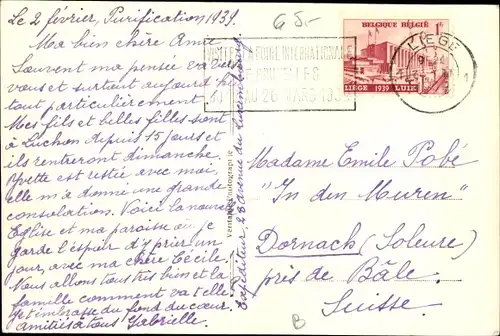 Le 2 février, Purification 1939.
Ma bien chère Amie
Souvent ma pensée va vers
vous et surtout aujourd'hui
tout particulièrement
Mes fils et belles filles sont
à Luchon depuis 15 jours et
ils rentreront dimanche.
Yvette est restée avec moi,
elle m'a donné une grande
consolation. Voici la nouvelle
Eglise et ma paroisse où je
garde l'espoir d'y prier un
jour, avec ma chère Cécile.
Nous allons tous très bien et la
famille comment va t elle
Je t'embrasse du fond du cœur.
Amitiés à tous Gabrielle.
Expéditeur 28 avenue du Luxembourg.
Véritable Photographie
G 5.-
BELGIQUE BELGIË 1 Fr
LIEGE 1939 LUIK
LIEGE
INTERNATIONALE
26 MARS
Madame Emile Pobé
"In den Muren"
Dornach (Soleure)
près de Bâle.
Suisse.
B